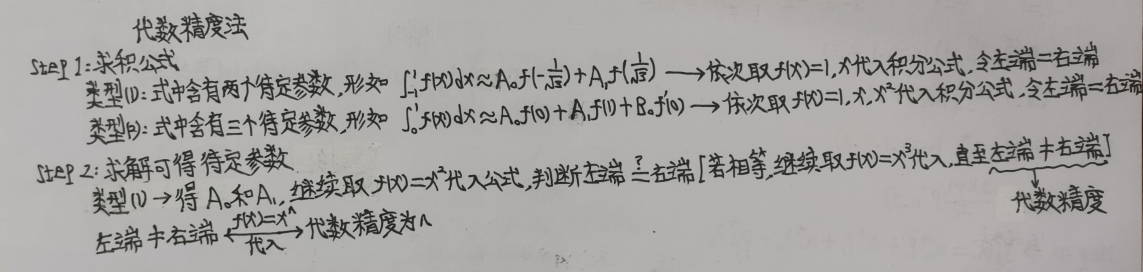 代数精度法
Step 1：求积公式
类型(1)：式中含有两个待定参数，形如 ∫₋₁¹f(x)dx≈A₀f(-1/√3)+A₁f(1/√3) ⟶依次取f(x)=1,x代入积分公式，令左端=右端
类型(2)：式中含有三个待定参数，形如 ∫₀¹f(x)dx≈A₀f(0)+A₁f(1)+B₀f'(0) → 依次取f(x)=1,x,x²代入积分公式，令左端=右端
Step 2：求解可得待定参数
类型(1)→得A₀和A₁，继续取f(x)=x²代入公式，判断左端≟右端[若相等，继续取f(x)=x³代入，直至左端≠右端]
代数精度
左端≠右端 ⟷ f(x)=xⁿ 代入 代数精度为n